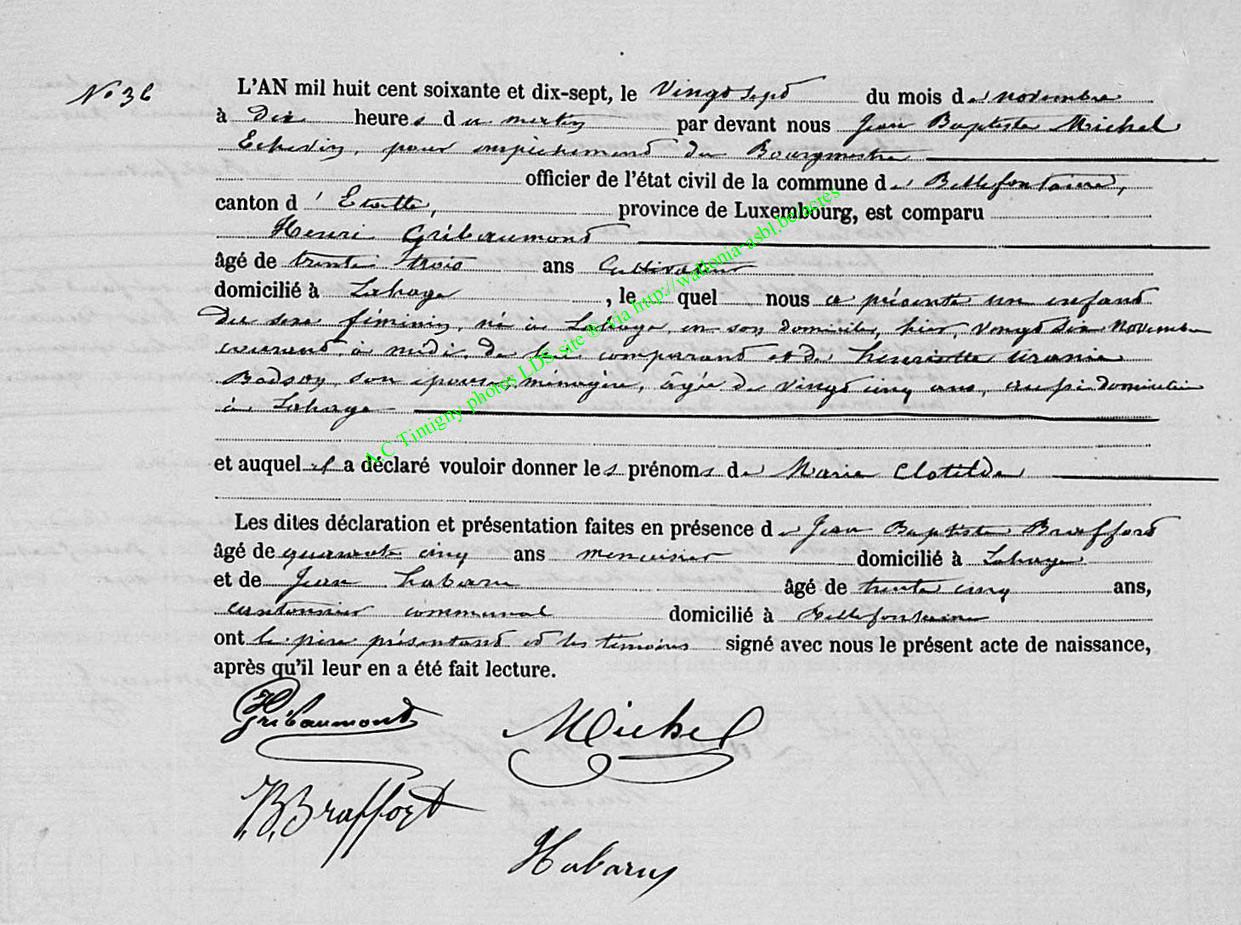 N° 36
L'AN mil huit cent soixante et dix-sept, le Vingt sept du mois de novembre
à Dix heures du matin par devant nous Jean Baptiste Michel
Echevin, pour empêchement du Bourgmestre
officier de l'état civil de la commune de Bellefontaine,
canton d'Etalle, province de Luxembourg, est comparu
Henri Gribaumont
âgé de trente trois ans Cultivateur
domicilié à Lahage, le quel nous a présenté un enfant
du sexe féminin, né à Lahage, en son domicile, hier, vingt six novembre
courant, à midi, de lui comparant et de Henriette Uranie
Badoy, son épouse, ménagère, âgée de vingt cinq ans, aussi domiciliée
à Lahage
et auquel il a déclaré vouloir donner les prénoms de Marie Clotilde
Les dites déclaration et présentation faites en présence de Jean Baptiste Braffort
âgé de quarante cinq ans menuisier domicilié à Lahage
et de Jean Habaru âgé de trente cinq ans,
cantonnier communal domicilié à Bellefontaine
ont le père présentant et les témoins signé avec nous le présent acte de naissance,
après qu'il leur en a été fait lecture.
H Gribaumont Michel
J.B. Braffort
Habaru
A.C Tintigny photos LDS, site © via http://wallonia-asbl.be